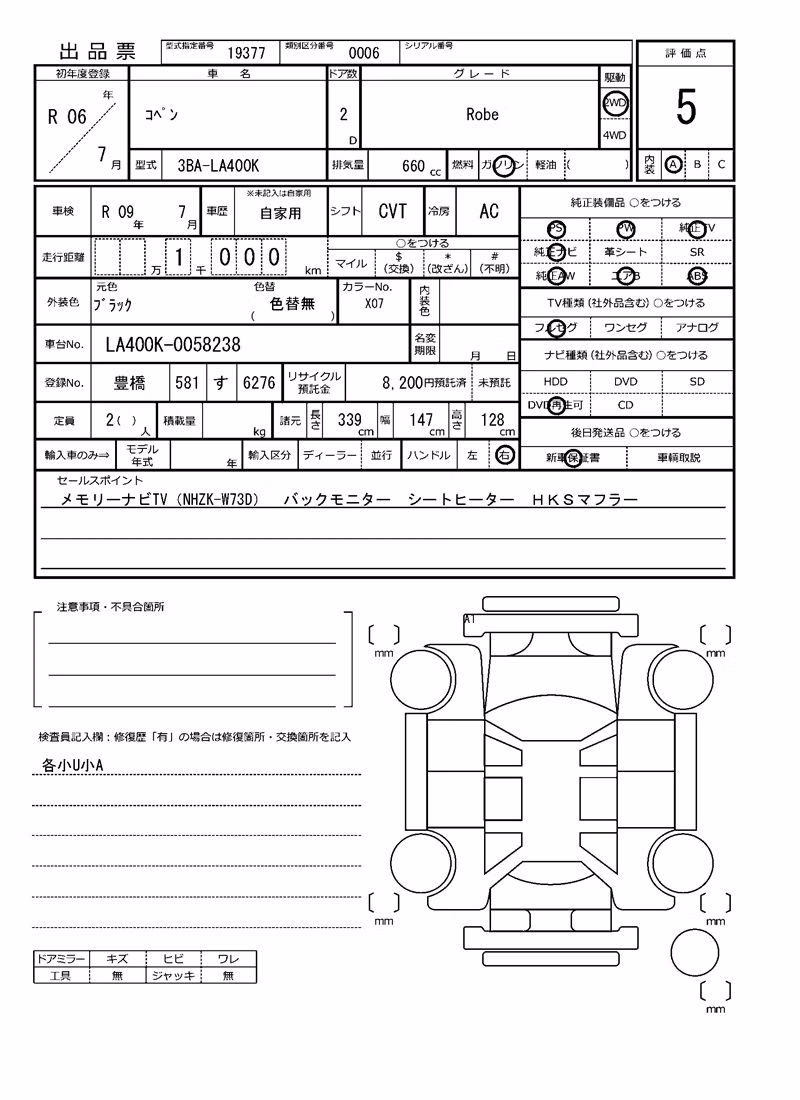 出品票 型式指定番号 19377 類別区分番号 0006 シリアル番号
評価点
初年度登録 車名 ドア数 グレード 駆動
R 06 年 7 月 コペン 2 D Robe 2WD 4WD 5
型式 3BA-LA400K 排気量 660 cc 燃料 ガソリン 軽油 ( ) 内装 A B C
車検 R 09 年 7 月 車歴 ※未記入は自家用 自家用 シフト CVT 冷房 AC
純正装備品 ○をつける
PS PW 純正TV
純正ナビ 革シート SR
純正AW エアB ABS
走行距離 万 1 千 0 0 0 km ○をつける
マイル $(交換) *(改ざん) #(不明)
外装色 元色 ブラック 色替 ( 色替無 ) カラーNo. X07 内装色
TV種類(社外品含む)○をつける
フルセグ ワンセグ アナログ
車台No. LA400K-0058238 名変期限 月 日
ナビ種類(社外品含む)○をつける
HDD DVD SD
DVD再生可 CD
登録No. 豊橋 581 す 6276 リサイクル預託金 8,200円預託済 未預託
定員 2( ) 人 積載量 kg 諸元 長さ 339 cm 幅 147 cm 高さ 128 cm
後日発送品 ○をつける
新車保証書 車輌取説
輸入車のみ⇒ モデル年式 年 輸入区分 ディーラー 並行 ハンドル 左 右
セールスポイント
メモリーナビTV(NHZK-W73D) バックモニター シートヒーター HKSマフラー
注意事項・不具合箇所
A1
mm mm
検査員記入欄:修復歴「有」の場合は修復箇所・交換箇所を記入
各小U小A
mm mm
ドアミラー キズ ヒビ ワレ
工具 無 ジャッキ 無
mm